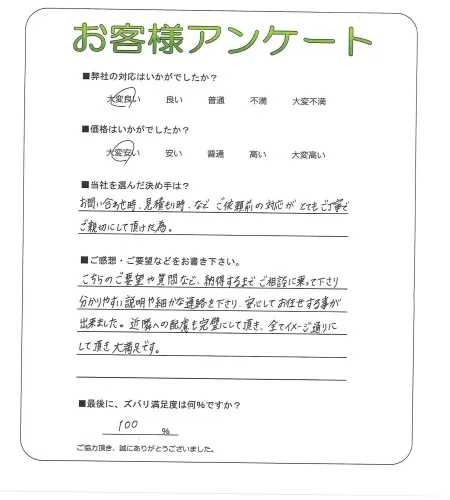 お客様アンケート
■弊社の対応はいかがでしたか?
大変良い 良い 普通 不満 大変不満
■価格はいかがでしたか?
大変安い 安い 普通 高い 大変高い
■当社を選んだ決め手は?
お問い合わせ時、見積もり時、など ご依頼前の対応が とてもご丁寧で
ご親切にして頂けた為。
■ご感想・ご要望などをお書き下さい。
こちらのご要望や質問など、納得するまで ご相談に乗って下さり
分かりやすい説明や細かな連絡を下さり、安心してお任せする事が
出来ました。近隣への配慮も完璧にして頂き、全てイメージ通りに
して頂き大満足です。
■最後に、ズバリ満足度は何%ですか?
100 %
ご協力頂き、誠にありがとうございました。